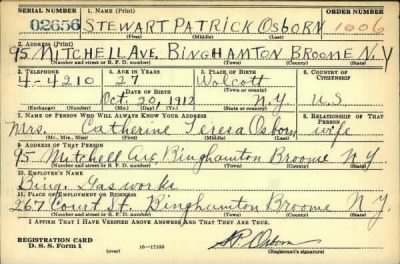 SERIAL NUMBER 1. NAME (Print) ORDER NUMBER
02656 STEWART PATRICK OSBORN 1006
(First) (Middle) (Last)
2. ADDRESS (Print)
95 MITCHELL AVE. BINGHAMTON BROOME N.Y.
(Number and street or R. F. D. number) (Town) (County) (State)
3. TELEPHONE 4. AGE IN YEARS 5. PLACE OF BIRTH 6. COUNTRY OF CITIZENSHIP
4-4210 27 Wolcott
DATE OF BIRTH (Town or county)
Oct. 20, 1912 N.Y. U.S
(Exchange) (Number) (Mo.) (Day) (Yr.) (State or country)
7. NAME OF PERSON WHO WILL ALWAYS KNOW YOUR ADDRESS 8. RELATIONSHIP OF THAT PERSON
Mrs. Catherine Teresa Osborn wife
(Mr., Mrs., Miss) (First) (Middle) (Last)
9. ADDRESS OF THAT PERSON
95 Mitchell Ave, Binghamton Broome N Y
(Number and street or R. F. D. number) (Town) (County) (State)
10. EMPLOYER'S NAME
Bing. Gas works
11. PLACE OF EMPLOYMENT OR BUSINESS
267 Court St. Binghamton Broome N.Y.
(Number and street or R. F. D. number) (Town) (County) (State)
I AFFIRM THAT I HAVE VERIFIED ABOVE ANSWERS AND THAT THEY ARE TRUE.
REGISTRATION CARD
D. S. S. Form 1 (over) 16-17105 S.P. Osborn
(Registrant's signature)